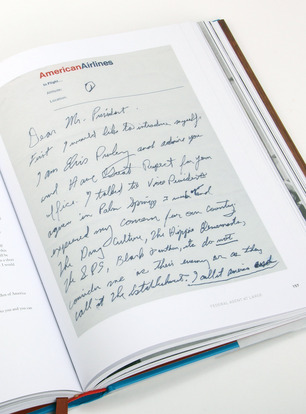 AmericanAirlines
In Flight...
Altitude;
Location;
Dear Mr. President.
First I would like to introduce myself.
I am Elvis Presley and admire you
and Have Great Respect for your
office. I talked to Vice President
agnew in Palm Springs and
expressed my concern for our country.
The Drug Culture, The Hippie Elements,
The SDS, Black Panthers, etc do not
consider me as their enemy or as they
call it The Establishment. I call it america and